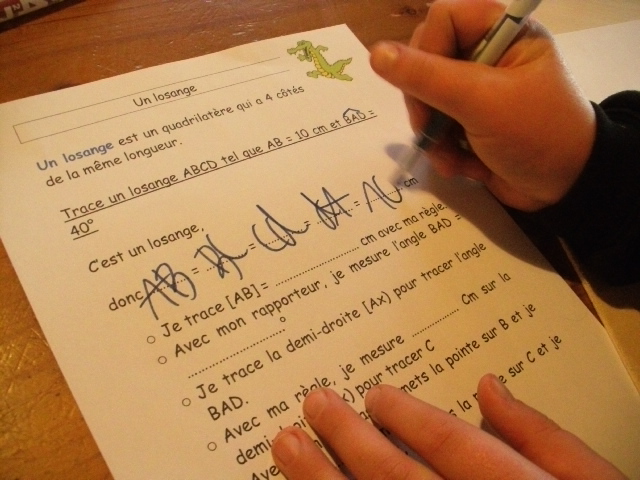 Un losange
Un losange est un quadrilatère qui a 4 côtés
de la même longueur.
Trace un losange ABCD tel que AB = 10 cm et BAD =
40°
C'est un losange,
donc AB = = CD = = cm
○ Je trace [AB] = .................... cm avec ma règle.
○ Avec mon rapporteur, je mesure l'angle BAD =
.................... °
○ Je trace la demi-droite [Ax) pour tracer l'angle
BAD.
○ Avec ma règle, je mesure ............ Cm sur la
pour tracer C
mets la pointe sur B et je
sur C et je